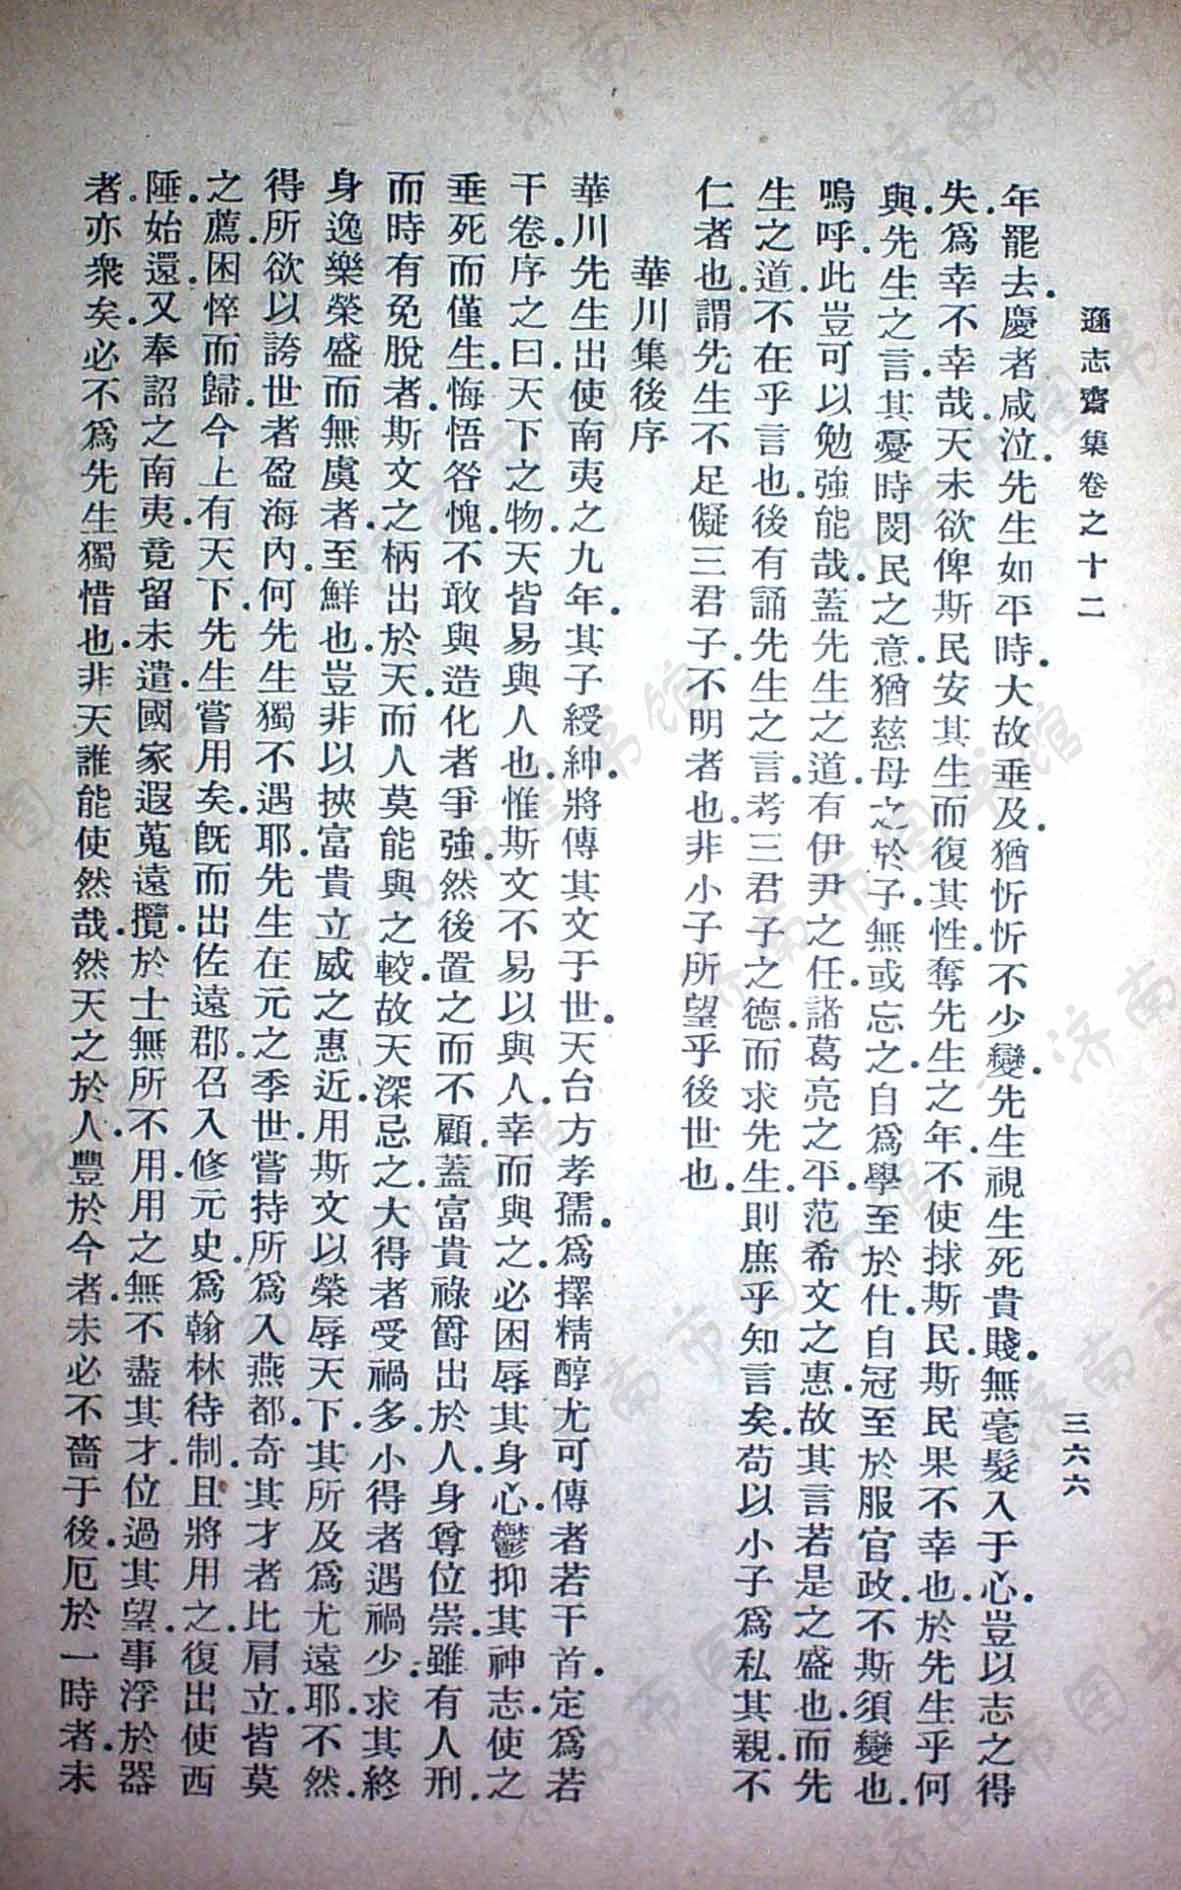 遜志齋集卷之十二
三六六
年罷去.慶者咸泣.先生如平時.大故垂及.猶忻忻不少變.先生視生死貴賤.無毫髮入于心.豈以志之得
失.為幸不幸哉.天未欲俾斯民安其生而復其性.奪先生之年.不使捄斯民.斯民果不幸也.於先生乎何
與.先生之言.其憂時閔民之意.猶慈母之於子.無或忘之.自爲學至於仕.自冠至於服官政.不斯須變也.
嗚呼.此豈可以勉強能哉.蓋先生之道.有伊尹之任.諸葛亮之平.范希文之惠.故其言若是之盛也.而先
生之道.不在乎言也.後有誦先生之言.考三君子之德.而求先生.則庶乎知言矣.苟以小子爲私其親.不
仁者也.謂先生不足儗三君子.不明者也.非小子所望乎後世也.
華川集後序
華川先生出使南夷之九年.其子綬紳.將傳其文于世.天台方孝孺.爲擇精醇尤可傳者若干首.定爲若
干卷.序之曰.天下之物.天皆易與人也.惟斯文不易以與人.幸而與之.必困辱其身心.鬱抑其神志.使之
垂死而僅生.悔悟咎愧.不敢與造化者爭強.然後置之而不顧.蓋富貴祿爵出於人.身尊位崇.雖有人刑.
而時有免脫者.斯文之柄出於天.而人莫能與之較.故天深忌之.大得者受禍多.小得者遇禍少.求其終
身逸樂榮盛而無虞者.至鮮也.豈非以挾富貴立威之惠近.用斯文以榮辱天下.其所及爲尤遠耶.不然.
得所欲以誇世者盈海內.何先生獨不遇耶.先生在元之季世.嘗持所爲入燕都.奇其才者比肩立.皆莫
之薦.困悴而歸.今上有天下.先生嘗用矣.旣而出佐遠郡.召入修元史.爲翰林待制.且將用之.復出使西
陲.始還.又奉詔之南夷.竟留未遣.國家遐蒐遠攬.於士無所不用.用之無不盡其才.位過其望.事浮於器
者.亦衆矣.必不爲先生獨惜也.非天誰能使然哉.然天之於人.豐於今者.未必不嗇于後.厄於一時者.未